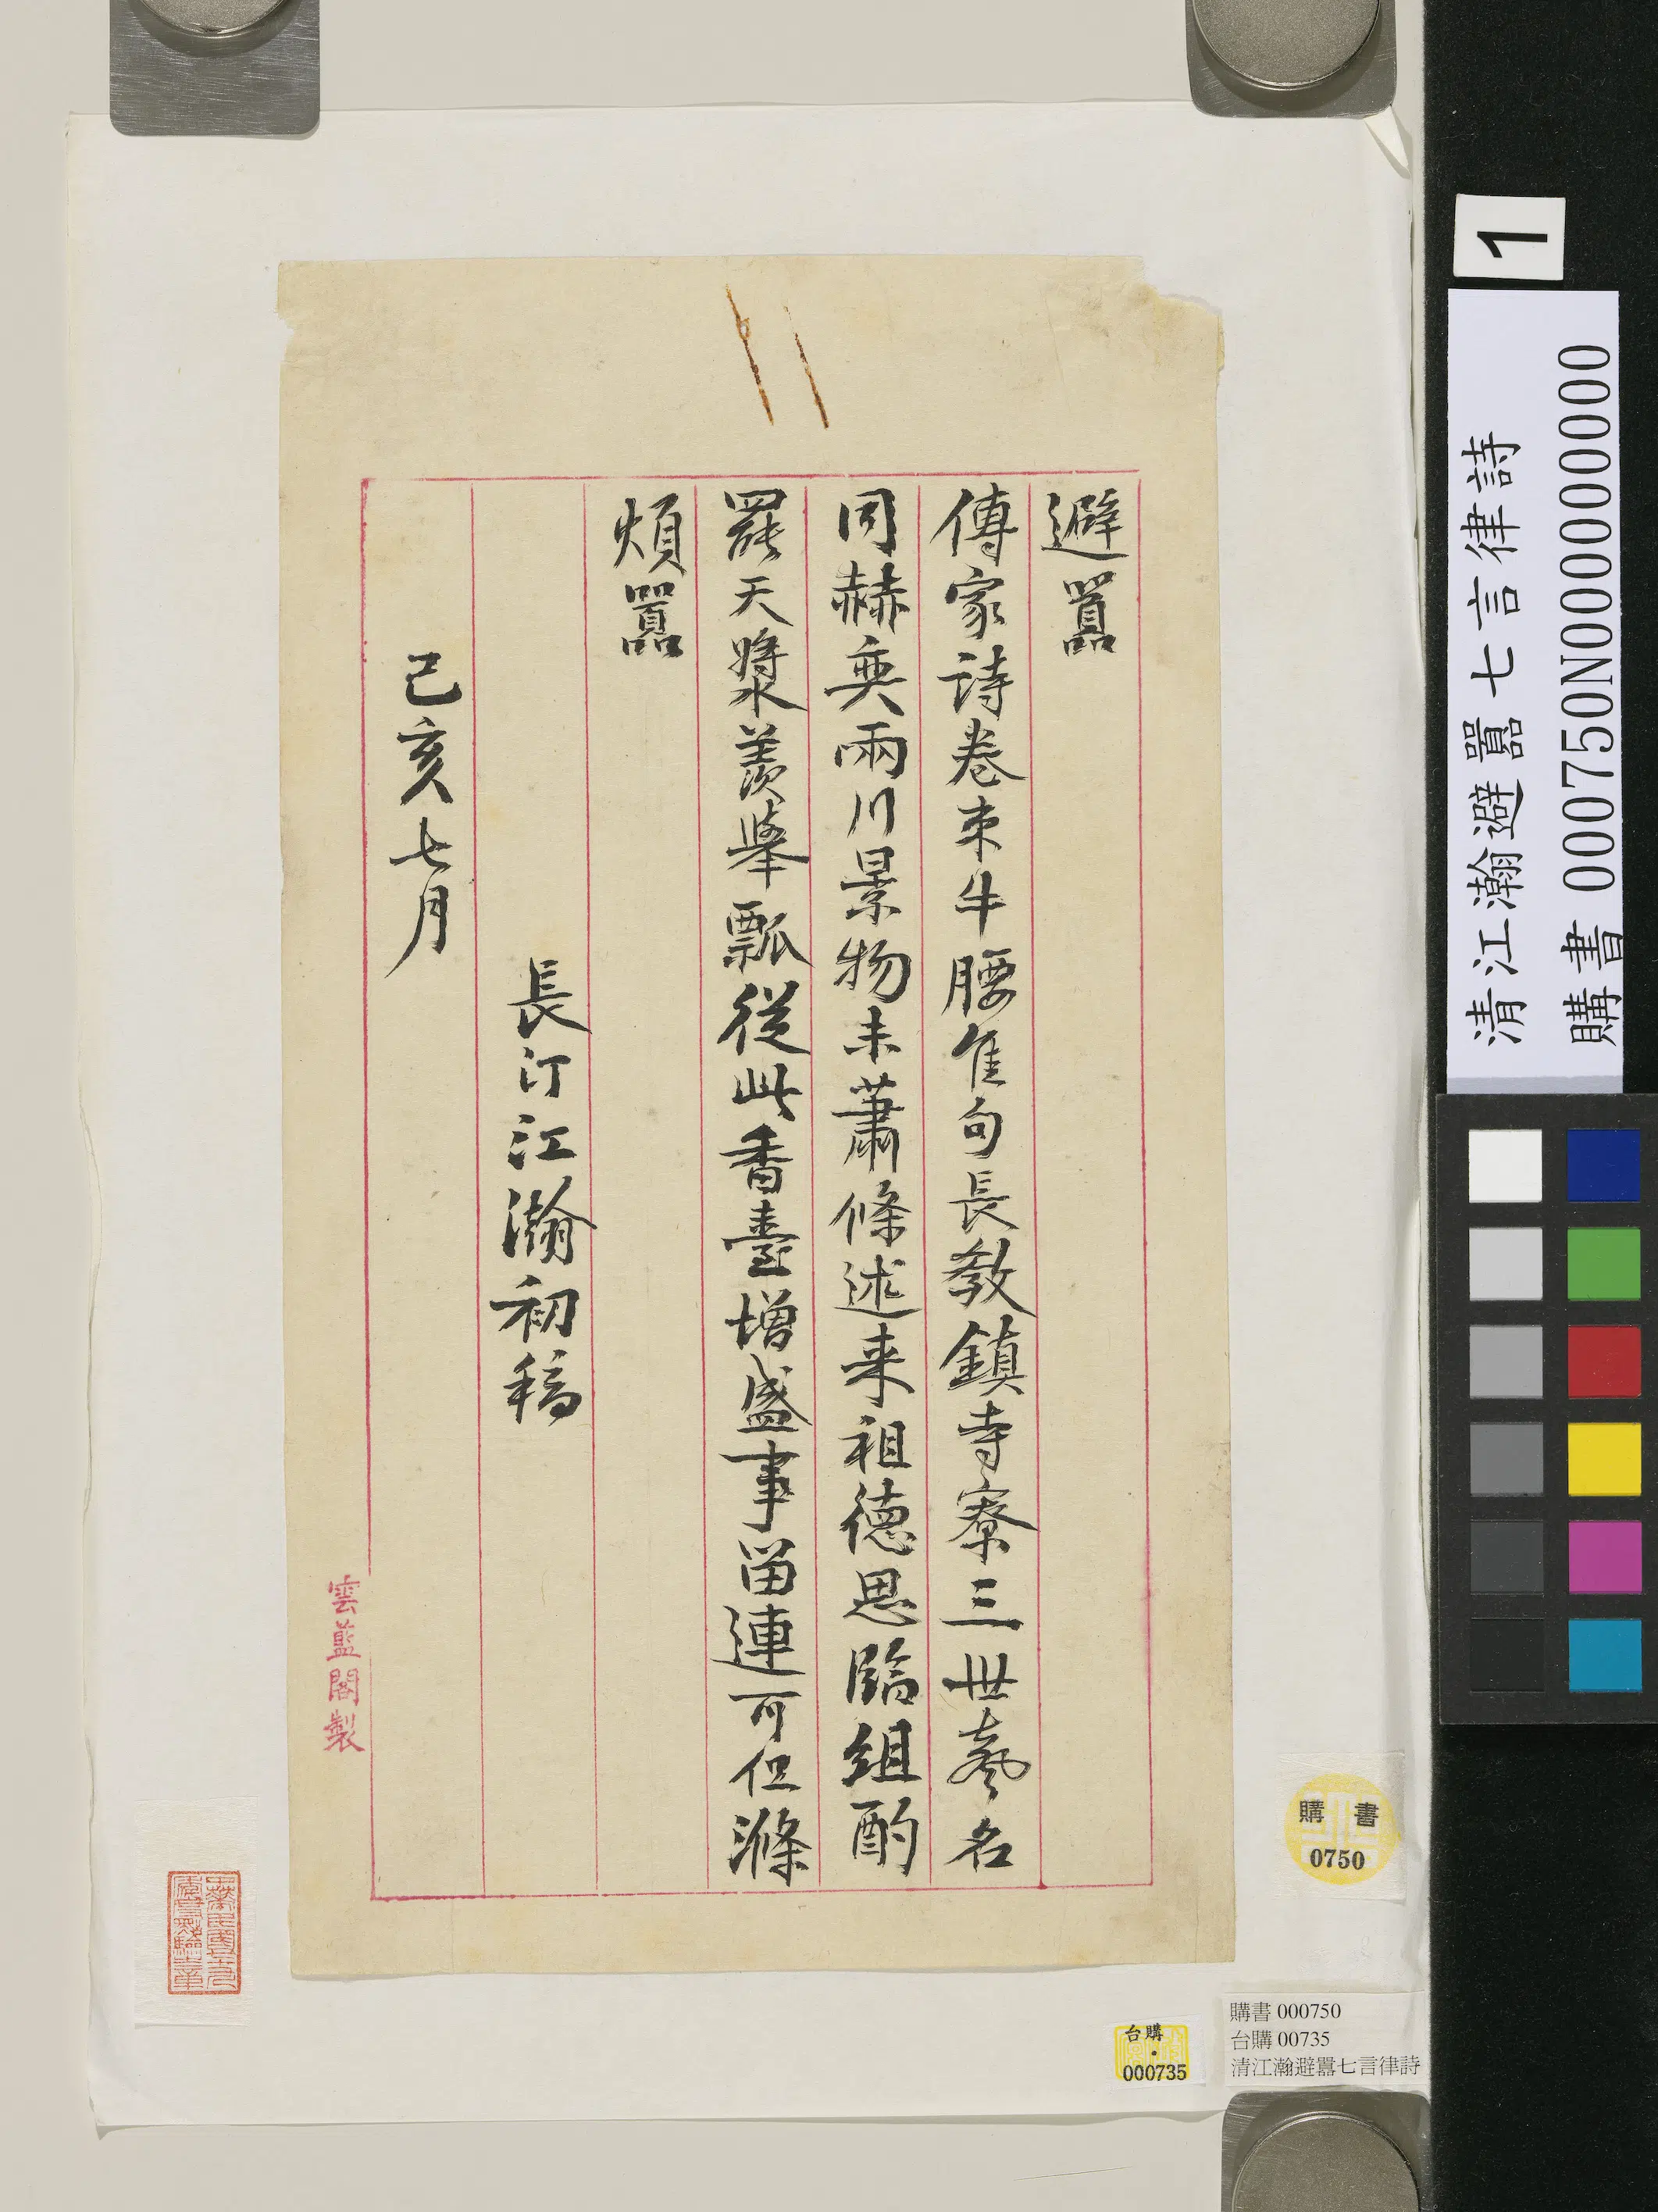 避囂
傳家詩卷束牛腰佳句長教鎮寺寮三世藝名
同赫奕兩川景物未蕭條述来祖德思臨組酌
罷天漿羨舉瓢從此香臺增盛事留連可但滌
煩囂
長汀江瀚初稿
己亥七月
雲藍閣製
1
清江瀚避囂七言律詩
購書 000750N000000000
購書
0750
台購
000735
購書 000750
台購 00735
清江瀚避囂七言律詩